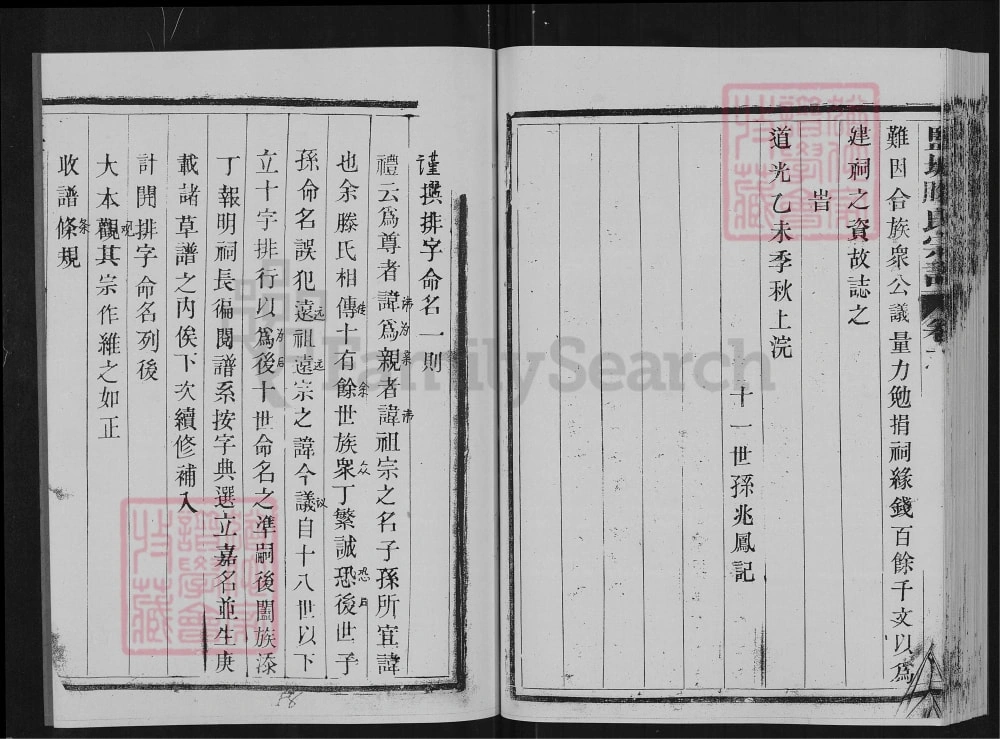 難因合族衆公議量力勉捐祠緣錢百餘千文以為
建祠之資故誌之
旹
道光乙未季秋上浣
十一世孫兆鳳記
謹撰排字命名一則
禮云爲尊者諱爲親者諱祖宗之名子孫所宜諱
也余滕氏相傳十有餘世族衆丁繁誠恐後世子
孫命名誤犯遠祖遠宗之諱今議自十八世以下
立十字排行以爲後十世命名之準嗣後闔族添
丁報明祠長徧閱譜系按字典選立嘉名並生庚
載諸草譜之內俟下次續修補入
計開排字命名列後
大本觀其宗作維之如正
收譜條規
58
FamilySearch